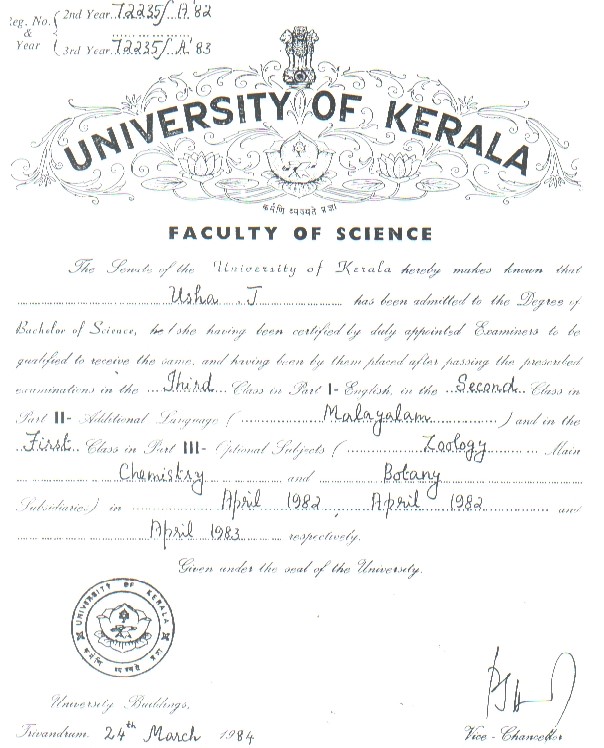 Reg. No. & Year
2nd Year 72235/ A '82
3rd Year 72235/ A '83
UNIVERSITY OF KERALA
कर्मणि व्यज्यते प्रज्ञा
FACULTY OF SCIENCE
The Senate of the University of Kerala hereby makes known that
Usha J has been admitted to the Degree of
Bachelor of Science, he/she having been certified by duly appointed Examiners to be
qualified to receive the same, and having been by them placed after passing the prescribed
examinations in the Third Class in Part I- English, in the Second Class in
Part II- Additional Language ( Malayalam ) and in the
First Class in Part III- Optional Subjects ( Zoology Main
Chemistry and Botany
Subsidiaries) in April 1982 April 1982 and
April 1983 respectively.
Given under the seal of the University.
UNIVERSITY OF KERALA
कर्मणि व्यज्यते प्रज्ञा
University Buildings,
Trivandrum. 24th March 1984
Vice-Chancellor